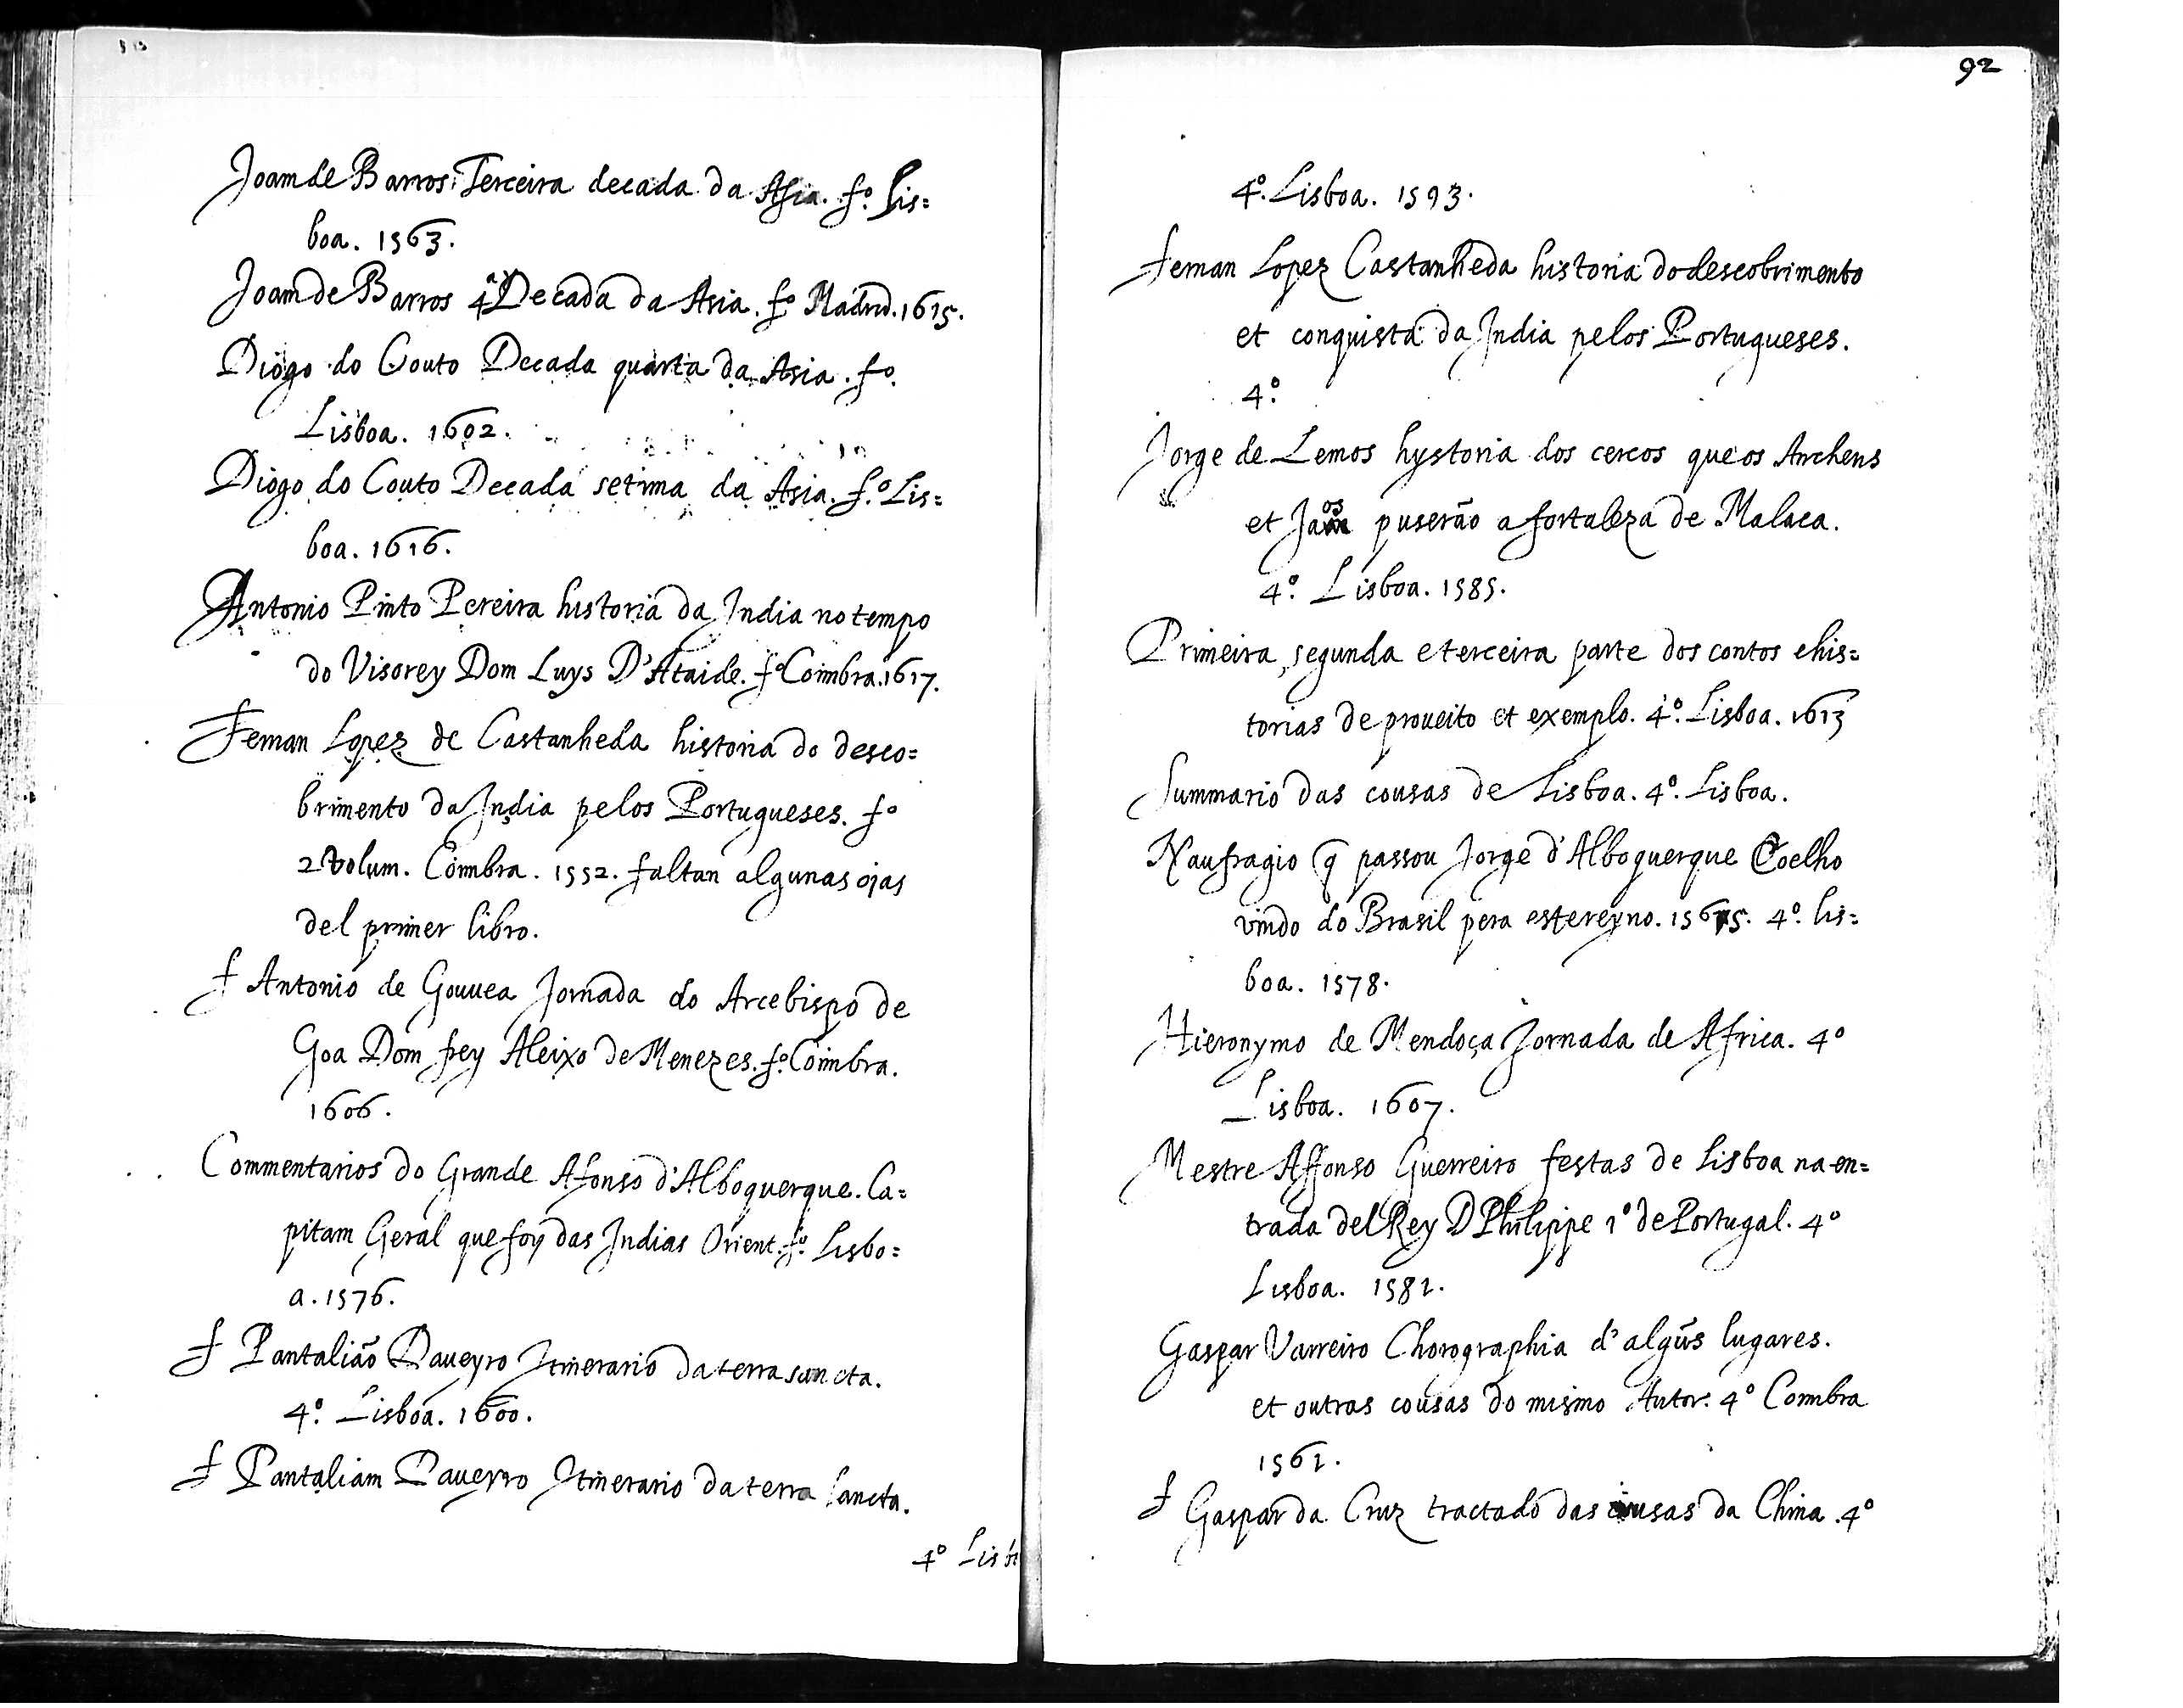 Joam de Barros Terceira decada da Asia. fº. Lis=
boa. 1563.
Joam de Barros 4ª Decada da Asia. fº Madrid. 1615.
Diogo do Couto Decada quarta da Asia. fº.
Lisboa. 1602.
Diogo do Couto Decada setima da Asia. f.º Lis=
boa. 1616.
Antonio Pinto Pereira historia da India no tempo
do Visorey Dom Luys D'Ataide. fº Coimbra. 1617.
Fernan Lopez de Castanheda historia do desco=
brimento da India pelos Portugueses. fº
2 volum. Coimbra. 1552. faltan algunas ojas
del primer libro.
f Antonio de Gouuea Jornada do Arcebispo de
Goa Dom frey Aleixo de Menezes. fº. Coimbra.
1606.
Commentarios do Grande Afonso d'Alboquerque. Ca=
pitam Geral que foy das Indias Orient. fº. Lisbo=
a. 1576.
f Pantalião Daueyro Itinerario da terra sancta.
4º. Lisboa. 1600.
f Pantaliam Daueyro Itinerario da terra sancta.
4º Lisb
92
4º. Lisboa. 1593.
Fernan Lopez Castanheda historia do descobrimento
et conquista da India pelos Portugueses.
4º.
Jorge de Lemos hystoria dos cercos que os Anchens
et Jaos puserão a fortaleza de Malaca.
4º. Lisboa. 1585.
Primeira, segunda e terceira parte dos contos e his=
torias de proueito et exemplo. 4º. Lisboa. 1613
Summario das cousas de Lisboa. 4º. Lisboa.
Naufragio q̃ passou Jorge d'Alboquerque Coelho
vindo do Brasil pera este reyno. 1565. 4º. lis=
boa. 1578.
Hieronymo de Mendoça Jornada de Africa. 4º
Lisboa. 1607.
Mestre Affonso Guerreiro festas de Lisboa na en=
trada del Rey D Philippe 1º de Portugal. 4º
Lisboa. 1581.
Gaspar Varreiro Chorographia d'algũs lugares.
et outras cousas do mismo Autor. 4º Coimbra
1561.
f Gaspar da Cruz tractado das cousas da China. 4º